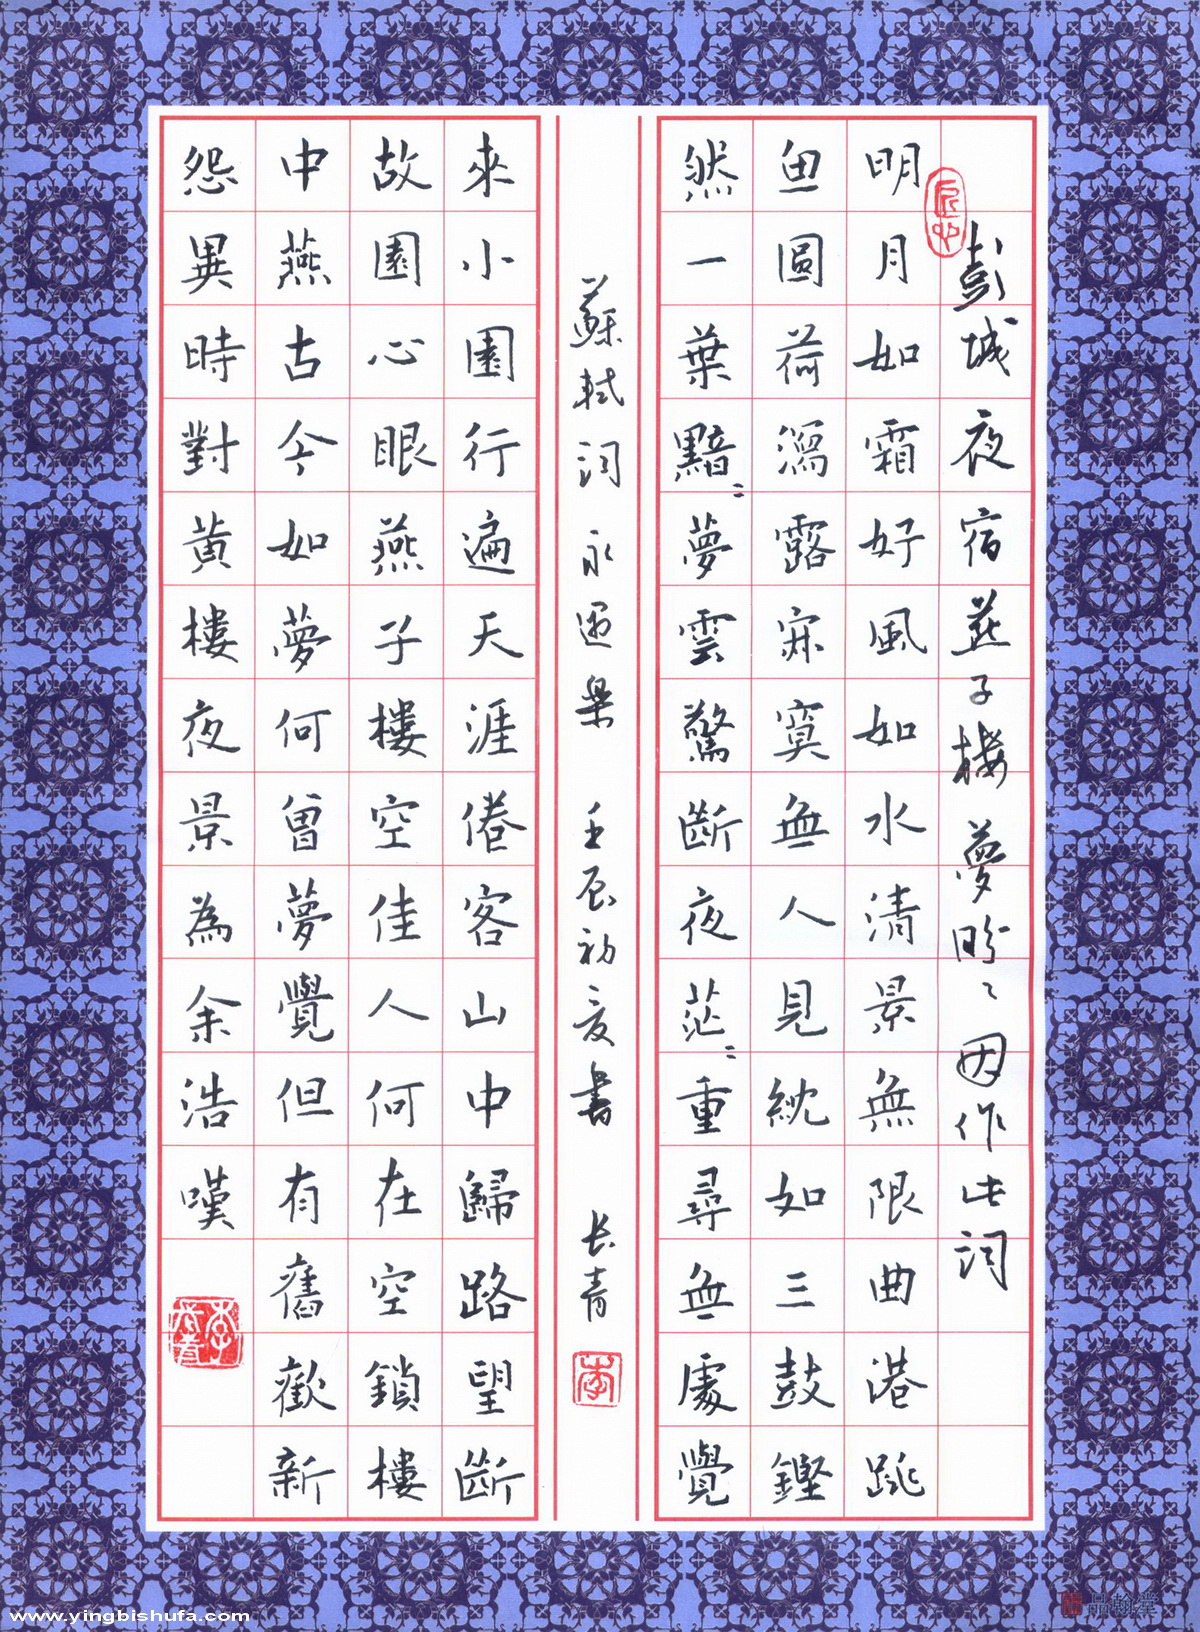 彭城夜宿燕子樓夢盼〻因作此詞
明月如霜好風如水清景無限曲港跳
魚圓荷瀉露寂寞無人見紞如三鼓鏗
然一葉黯〻夢雲驚斷夜茫〻重尋無處覺
來小園行遍天涯倦客山中歸路望斷
故園心眼燕子樓空佳人何在空鎖樓
中燕古今如夢何曾夢覺但有舊歡新
怨異時對黃樓夜景為余浩嘆
蘇軾詞永遇樂 壬辰初夏書 长青
李
www.yingbishufa.com
品翰堂